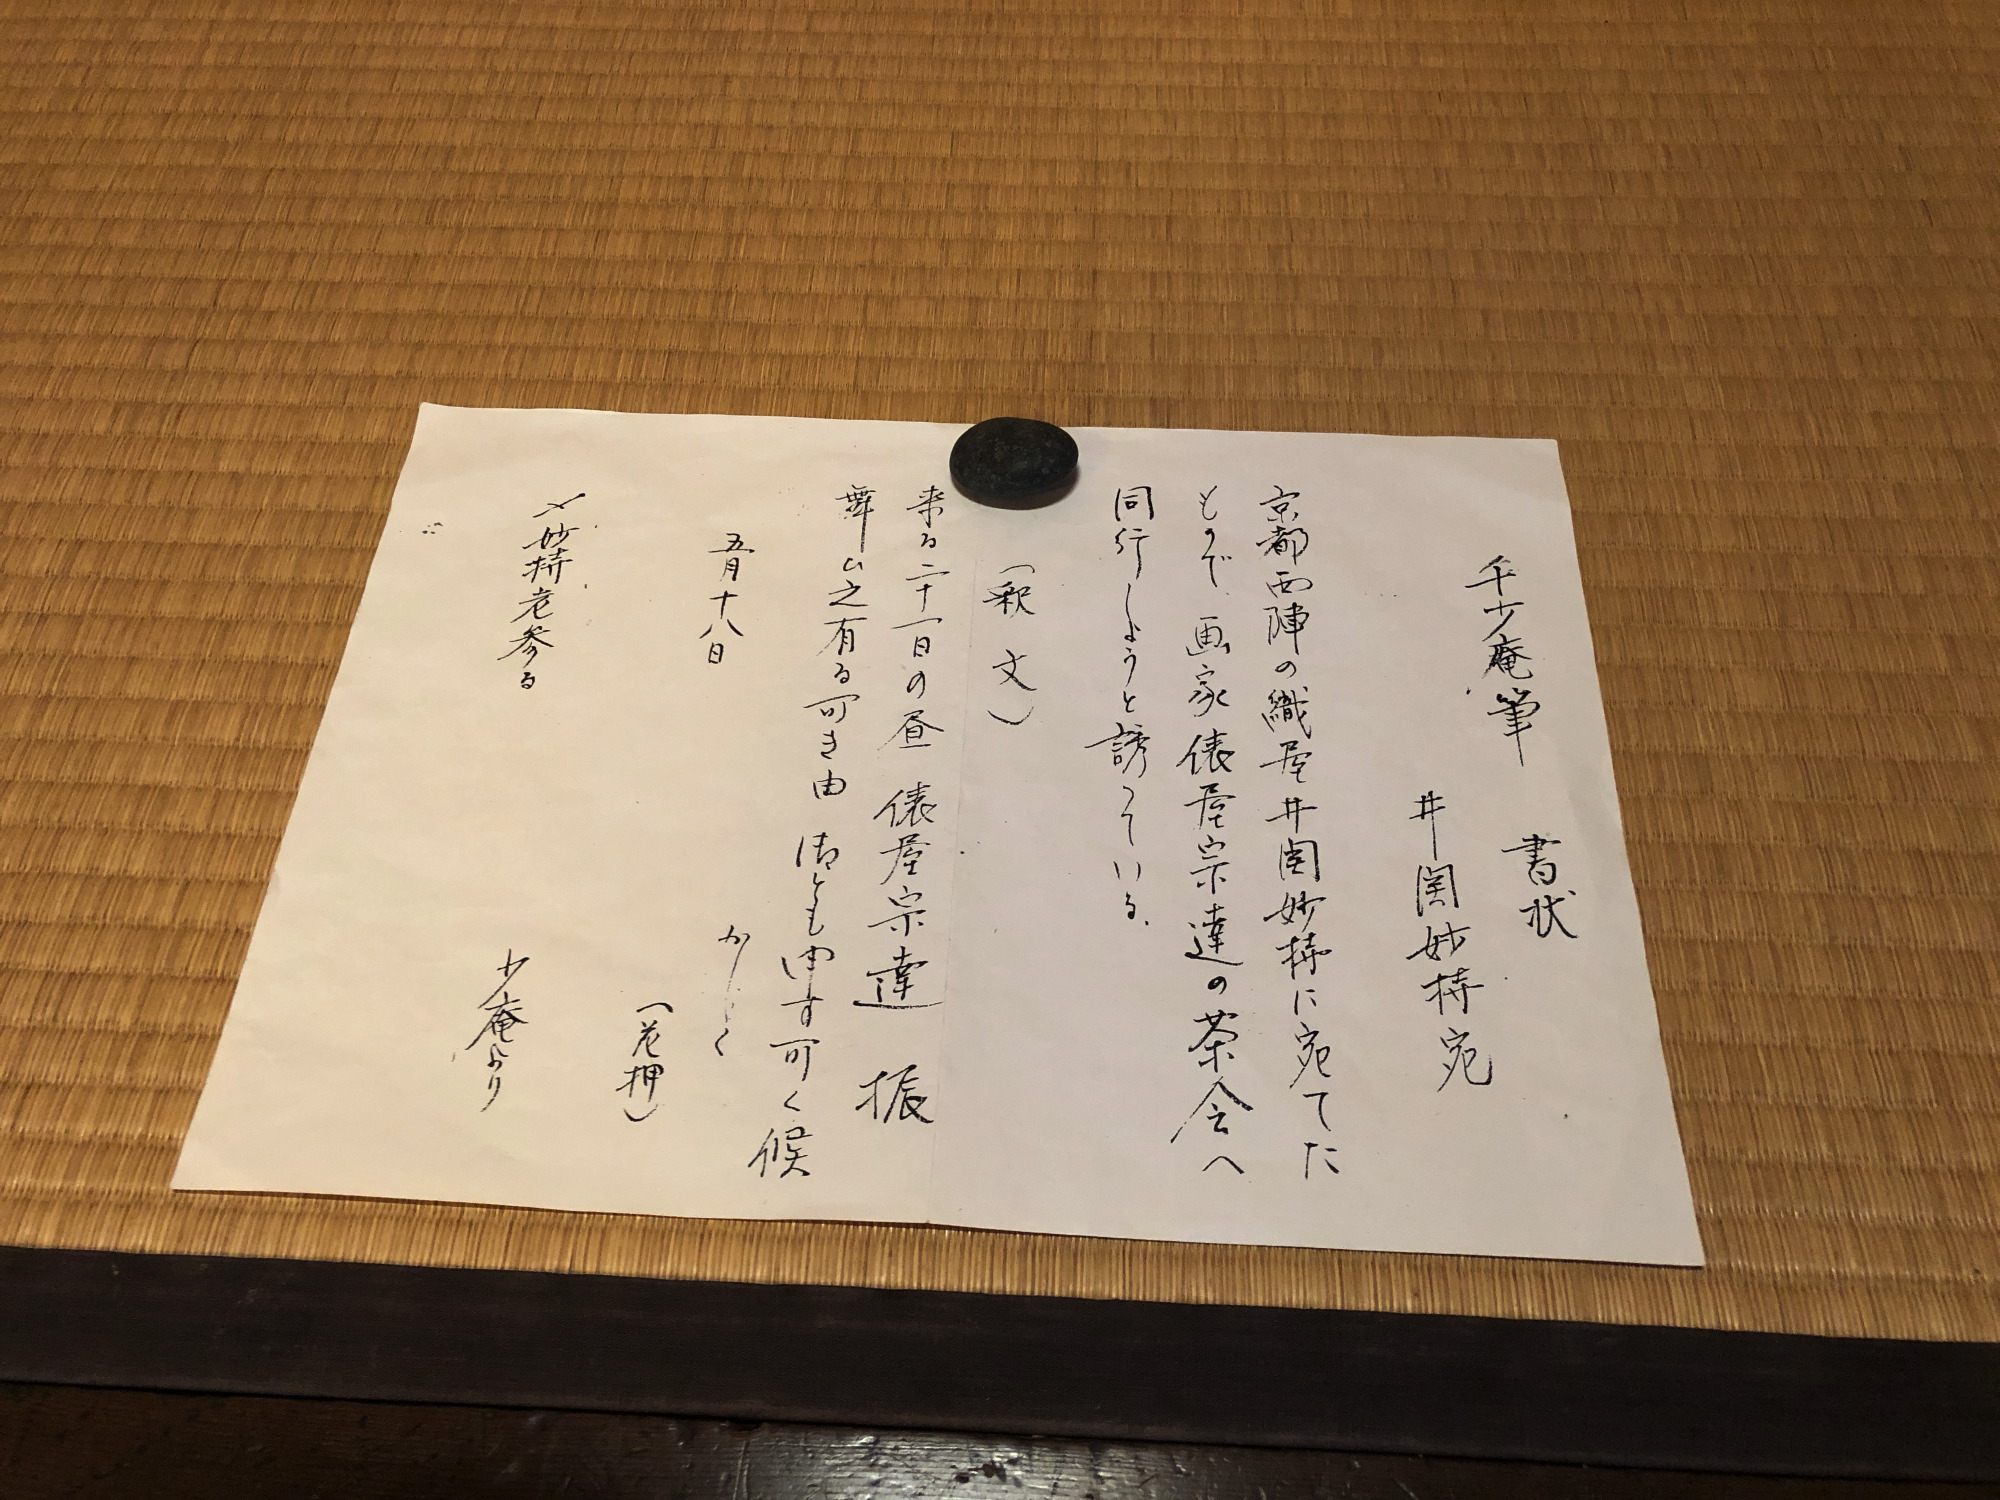 千少庵筆　書状
井関妙持宛
京都西陣の織屋井関妙持に宛てた
もので、画家俵屋宗達の茶会へ
同行しようと誘っている。
（釈文）
来る二十一日の昼　俵屋宗達　振
舞ひ之有る可き由　御とも申す可く候
かしく
五月十八日
（花押）
〆妙持老参る
少庵より